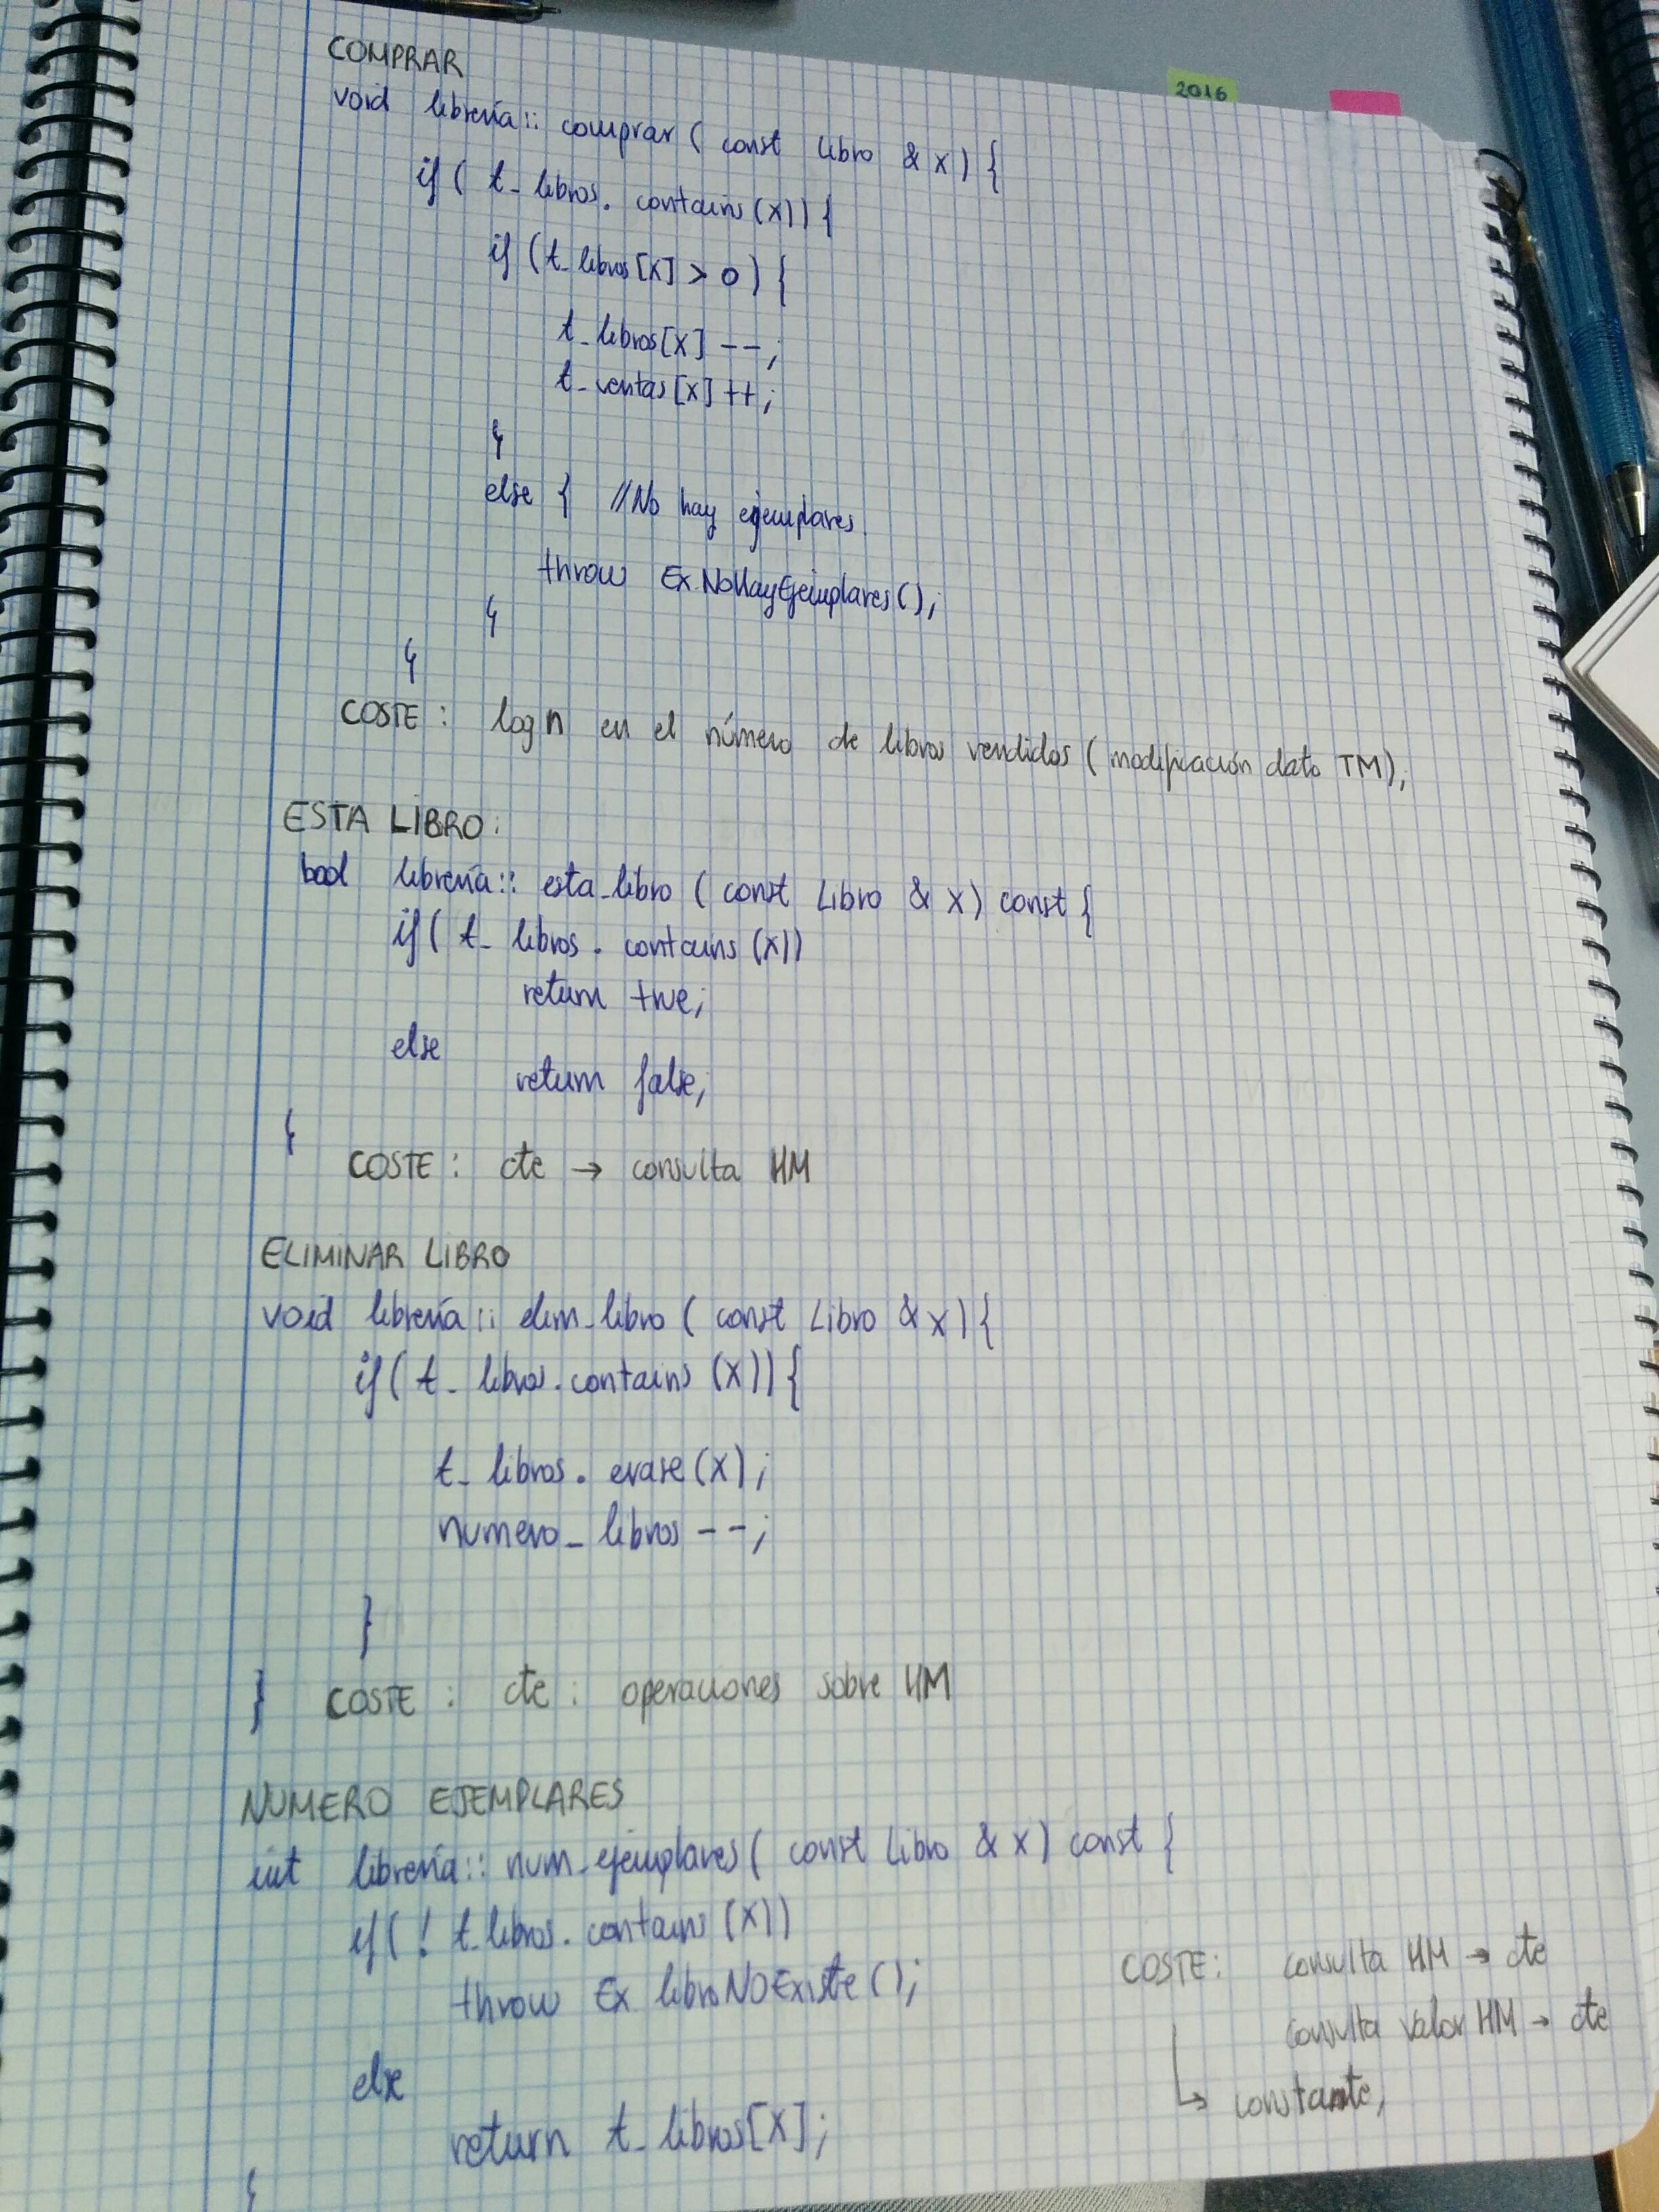 2016
COMPRAR
void librería:: comprar ( const Libro & x ) {
if ( t_libros. contains (x)) {
if (t_libros[x] > 0 ) {
t_libros[x] --;
t_ventas[x] ++;
}
else { //No hay ejemplares.
throw Ex.NoHayEjemplares();
}
}
COSTE : log n en el número de libros vendidos ( modificación dato TM);
ESTA LIBRO:
bool librería:: esta_libro ( const Libro & x ) const {
if ( t_ libros . contains (x))
return true;
else
return false;
}
COSTE : cte → consulta HM
ELIMINAR LIBRO
void librería :: elim_libro ( const Libro & x ) {
if ( t_ libros. contains (x)) {
t_ libros . erase (x) ;
numero_ libros --;
}
} COSTE : cte : operaciones sobre HM
NUMERO EJEMPLARES
int librería:: num_ejemplares ( const Libro & x ) const {
if ( ! t_libros. contains (x))
throw Ex libroNOExiste ();
else
return t_ libros[x] ;
}
COSTE: consulta HM → cte
consulta valor HM → cte
↳ constante,